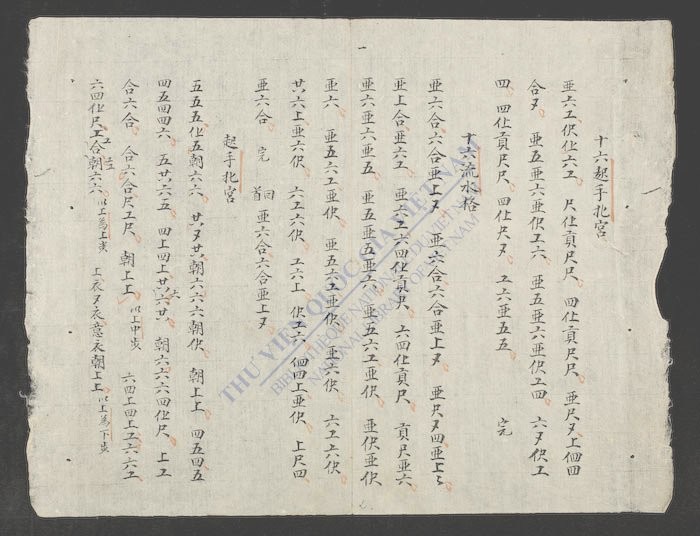 十六起手北宮
亜六工伬仩六工 尺仩貢尺尺 四仩貢尺尺 亜尺上佃四
合 亜五亜六亜伬工六 亜五亜六亜伬工四 六伬工
四 四仩貢尺尺 四仩尺 工六亜五五 完
十六流水格
亜六合六合亜上 亜六合六合亜上 亜尺四亜上
亜上合亜六工 亜六工六四仩貢尺 六四仩貢尺 貢尺亜六
亜六亜六亜五 亜五亜五亜六 亜五六工亜伬 亜伬亜伬
亜六 亜五六工亜伬 亜五六工亜伬 亜六伬 六工六伬
六上亜六伬 六工六伬 工六上 伬工六 佃四上亜伬 上尺四
亜六合 完 回首 亜六合六合亜上
起手北宮
五五五仩五朝六六 朝六六六朝伬 朝上上 四五四五
四五四四六 五六五 四上四上六 朝六六六四仩尺 上工
合六合 合六合尺工尺 朝上上 以上中步 六四上四上工六六工
六四仩尺工合朝六六 以上為上步 上衣衣意衣朝上上 以上為下步
THƯ VIỆN QUỐC GIA VIỆT NAM
BIBLIOTHÈQUE NATIONALE DU VIETNAM
NATIONAL LIBRARY OF VIETNAM